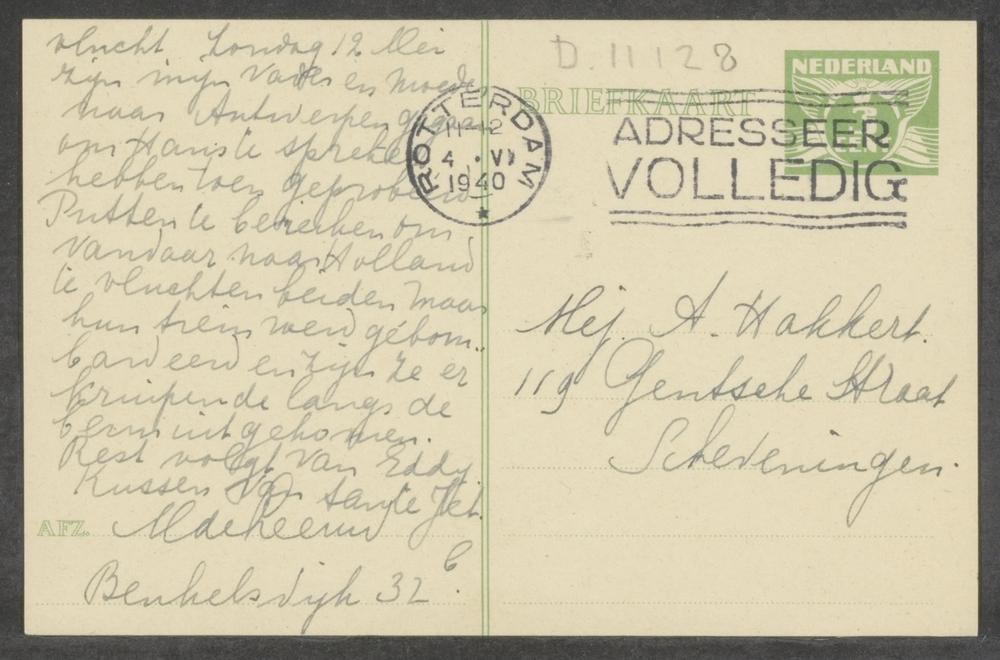 vlucht Zondag 12 Mei
zijn mijn Vader en Moeder
naar Antwerpen gegaan
om Hans te spreken
hebben toen geprobeerd
Putten te bereiken om
vandaar naar Holland
te vluchten beiden maar
hun trein werd gebom-
bardeerd en zijn ze er
kruipende langs de
berm uitgekomen.
Rest volgt van Eddy
Kussen van tante Jet.
AFZ.
Beukelsdijk 32 b
D. 11128
BRIEFKAART
NEDERLAND
ROTTERDAM
11-12
4 . VI
1940
ADRESSEER
VOLLEDIG
Mej. A. Hakkert.
119 Gentsche Straat
Scheveningen.